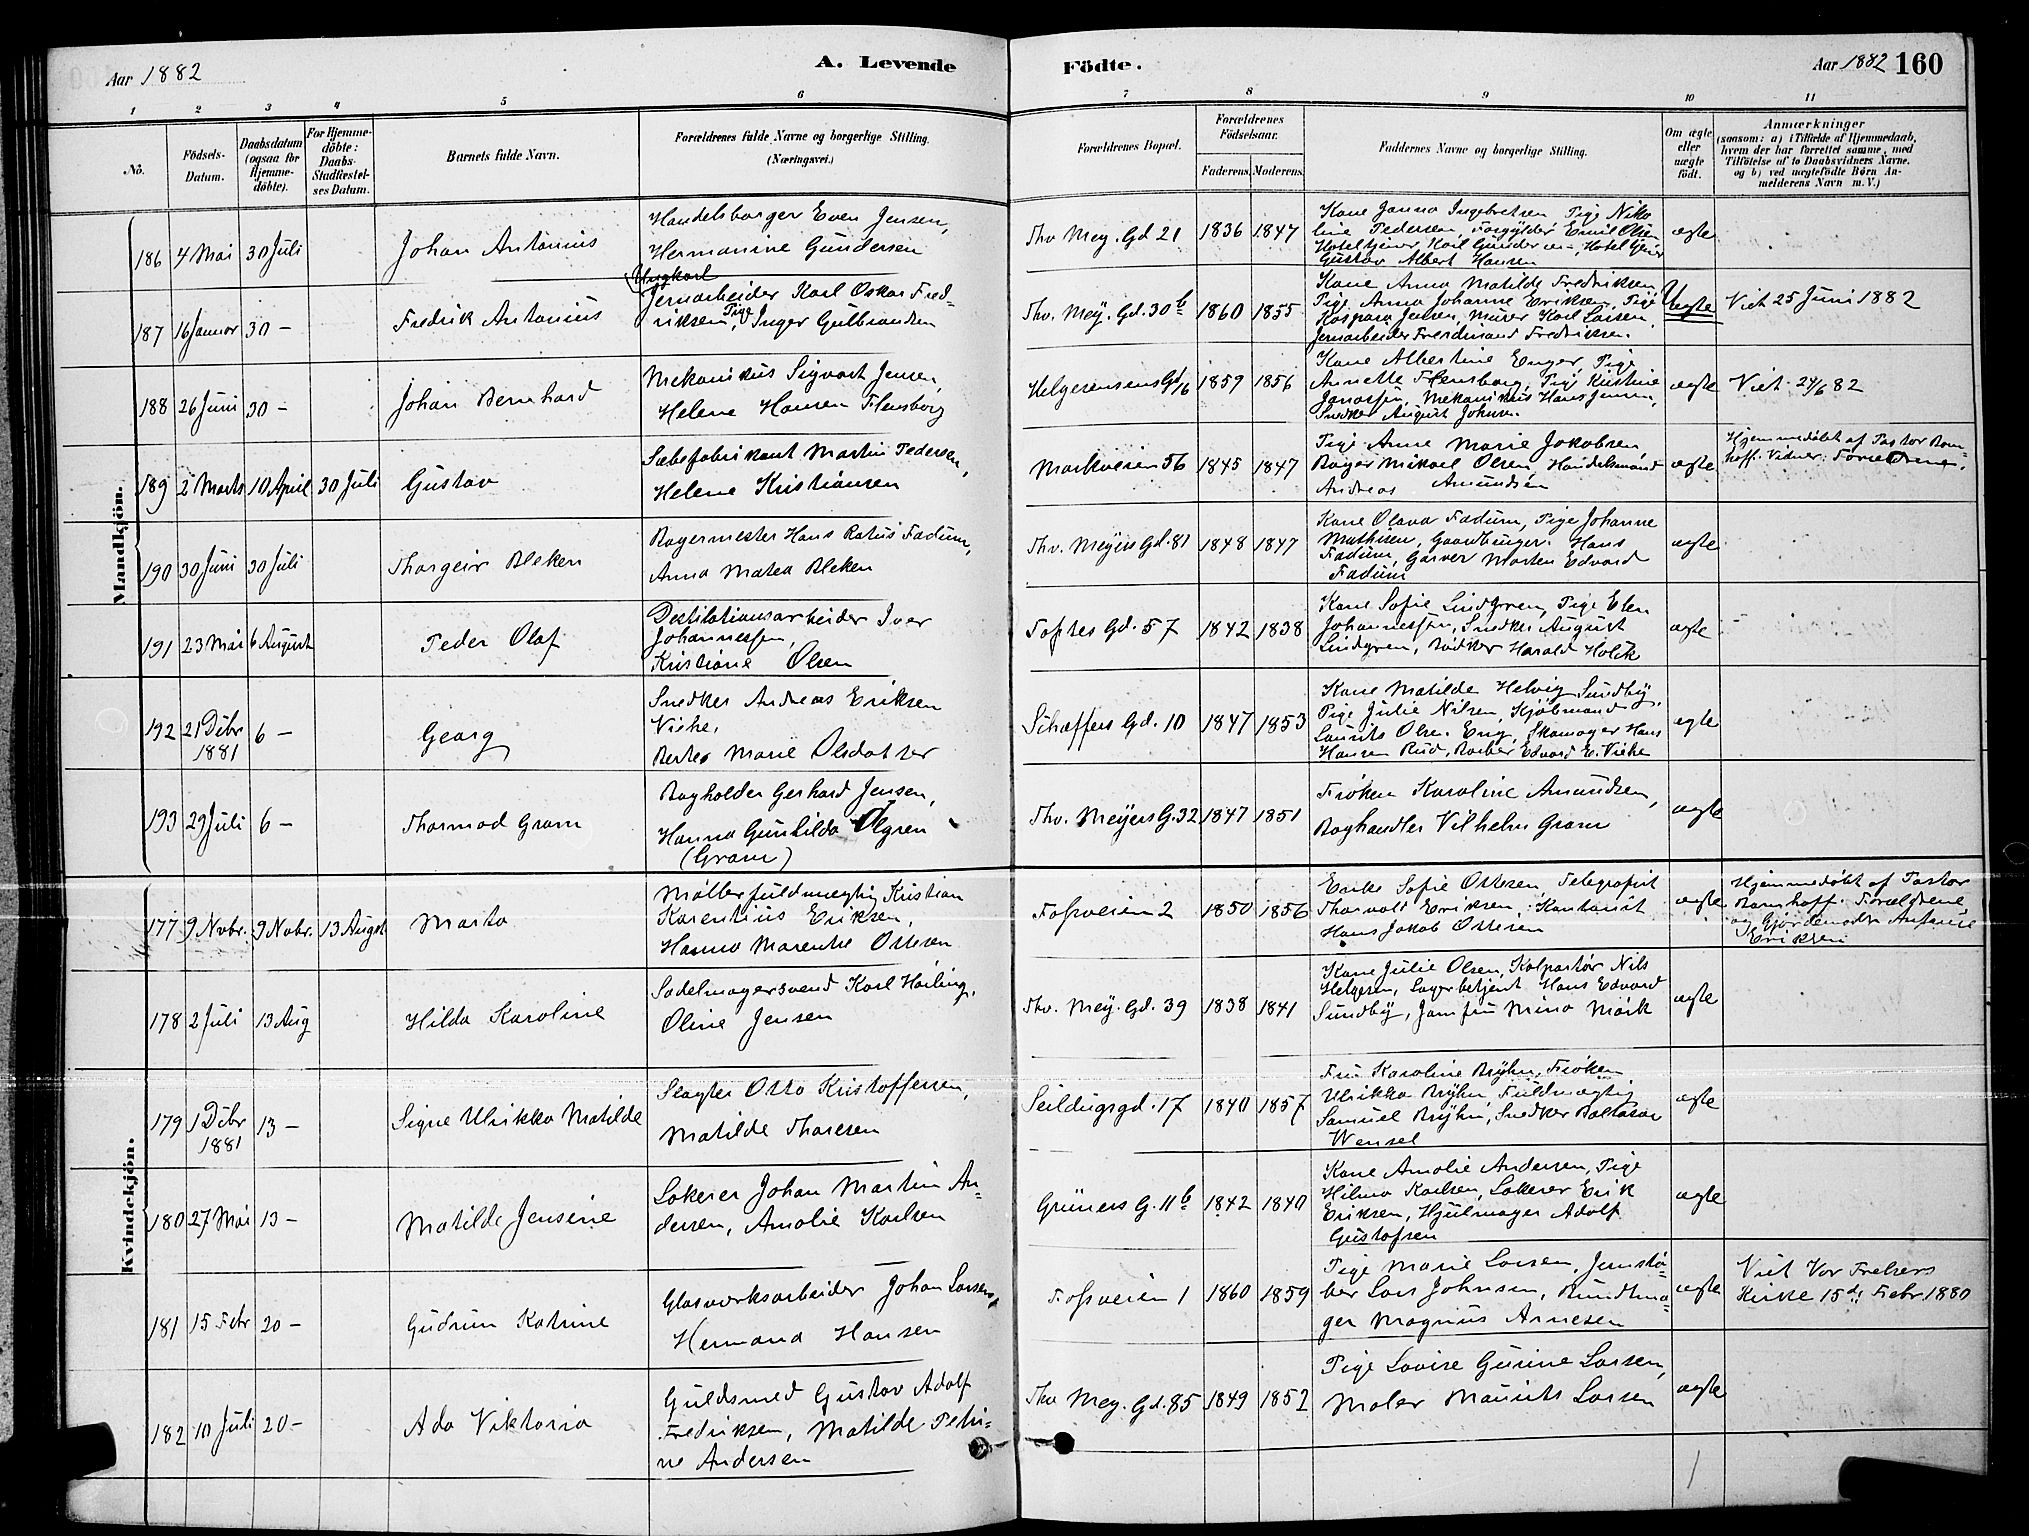 Aar 1882
A. Levende
Födte.
Aar 1882 160
1 2 3 4 5 6 7 8 9 10 11
No.
Födsels-
Datum.
Daabsdatum
(ogsaa for
Hjemme-
döbte).
For Hjemme-
döbte:
Daabs-
Stadfæstel-
ses Datum.
Barnets fulde Navn.
Forældrenes fulde Navne og borgerlige Stilling.
(Næringsvei.)
Forældrenes Bopæl.
Forældrenes
Födselsaar.
Faderens. Moderens.
Faddernes Navne og borgerlige Stilling.
Om ægte
eller
uægte
födt.
Anmærkninger
(saasom: a) i Tilfælde af Hjemmedaab,
hvem der har forrettet samme, med
Tilföielse af to Daabsvidners Navne,
og b) ved uægtefödte Børn An-
melderens Navn m. V.)
Mandkjön.
186 4 Mai 30 Juli
Johan Antonius
Handelsborger Even Jensen,
Hermanine Gundersen
Thv Mey. Gd 21 1836 1847
Kone Janna Ingebretsen, Pige Niko
line Pedersen, Forgylder Emil Olsen
Hoteltjener, Karl Gundersen, Hoteltjener
Gustav Albert Hansen
ægte
187 16 Januar 30 -
Fredrik Antonius
Ungkarl
Jernarbeider Karl Oskar Fred-
riksen, Pige Inger Gulbrandsen
Thv. Mey. Gd. 30 b 1860 1855
Kone Anna Matilde Fredriksen,
Pige Anna Johanne Eriksen, Pige
Kaspara Jensen, Murer Karl Larsen,
Jernarbeider Ferdinand Fredriksen.
Uægte
Viet 25 Juni 1882
188 26 Juni 30 -
Johan Bernhard
Mekanikus Sigvart Jensen,
Helene Hansen Flensborg
Helgesensens Gd 16 1859 1856
Kone Albertine Enger, Pige
Annette Flensborg, Pige Kristine
Janassen, Mekanikus Hans Jensen,
Snedker August Johnsen.
ægte
Viet 24/6 82
189 2 Marts 10 April 30 Juli
Gustav
Sæbefabrikant Martin Pedersen,
Helene Kristiansen
Markveien 56 1845 1847
Pige Anne Marie Jakobsen,
Bager Mikael Olsen, Handelsmand
Andreas Amundsen
ægte
Hjemmedøbt af Pastor Bom-
hoff. Vidner: Forældrene.
190 30 Juni 30 Juli
Thorgeir Bleken
Bagermester Hans Ratus Fadum,
Anna Matea Bleken
Thv. Meyers Gd. 81 1848 1847
Kone Olava Fadum, Pige Johanne
Mathisen, Gaardbruger Hans
Fadum, Garver Morten Edvard
Fadum
ægte
191 23 Mai 6 August
Peder Olaf
Destilationsarbeider Iver
Johannessen,
Kristiane Olsen
Toftes Gd. 57 1842 1838
Kone Sofie Lindgren, Pige Elen
Johannessen, Snedker August
Lindgren, Bødker Harald Holck
ægte
192 21 Dcbr 6 -
1881
Georg
Snedker Andreas Eriksen
Viske,
Berte Marie Olsdatter
Schaffers Gd. 10 1847 1853
Kone Matilde Helvig Sundby,
Pige Julie Nilsen, Kjøbmand
Laurits Olsen Eng, Skomager Hans
Hansen Rud, Barber Edvard E. Viske
ægte
193 29 Juli 6 -
Thormod Gram
Bogholder Gerhard Jensen,
Hanna Gunhilda Ølgren
(Gram)
Thv. Meyers G. 32 1847 1851
Frøken Karoline Amundsen,
Boghandler Vilhelm Gram
ægte
Kvindekjön.
177 9 Novbr. 9 Novbr. 13 August
Marta
Møllerfuldmægtig Kristian
Karentius Eriksen,
Hanna Marentse Ottesen
Fossveien 2 1850 1856
Enke Sofie Ottesen, Telegrafist
Thorvald Eriksen, Kontorist
Hans Jakob Ottesen
ægte
Hjemmedøbt af Pastor
Bomhoff. Forældrene
og Gjordemoder
Eriksen
178 2 Juli 13 Aug
Hilda Karoline
Sadelmagersvend Karl Høiling,
Oline Jensen
Thv. Mey. Gd. 39 1838 1841
Kone Julie Olsen, Kolportør Nils
Helgesen, Lagerbetjent Hans Edvard
Sundby, Jomfru Mina Mørk
ægte
179 1 Dcbr 13 -
1881
Signe Ulrikka Matilde
Slagter Otto Kristoffersen,
Matilde Thoresen
Seildugsgd. 17 1840 1857
Fru Karoline Bryhn, Frøken
Ulrikka Bryhn, Fuldmægtig
Samuel Bryhn, Snedker Baltasar
Wensel
ægte
180 27 Mai 13 -
Matilde Jensine
Lakerer Johan Martin An-
dersen, Amalie Karlsen
Grüners G. 11 b 1842 1840
Kone Amalie Andersen, Pige
Hilma Karlsen, Lakerer Erik
Eriksen, Hjulmager Adolf
Gustafsen
ægte
181 15 Febr 20 -
Gudrun Katrine
Glasværksarbeider Johan Larsen,
Hermana Hansen
Fossveien 1 1860 1859
Pige Marie Larsen, Jernstø-
ber Lars Johnsen, Bundtma-
ger Magnus Arnesen
ægte
Viet Vor Frelsers
Kirke 15de Febr. 1880
182 10 Juli 20 -
Ada Viktoria
Guldsmed Gustav Adolf
Fredriksen, Matilde Petri-
ne Andersen
Thv Mey. Gd. 85 1849 1852
Pige Lovise Gurine Larsen,
Maler Maurits Larsen
ægte